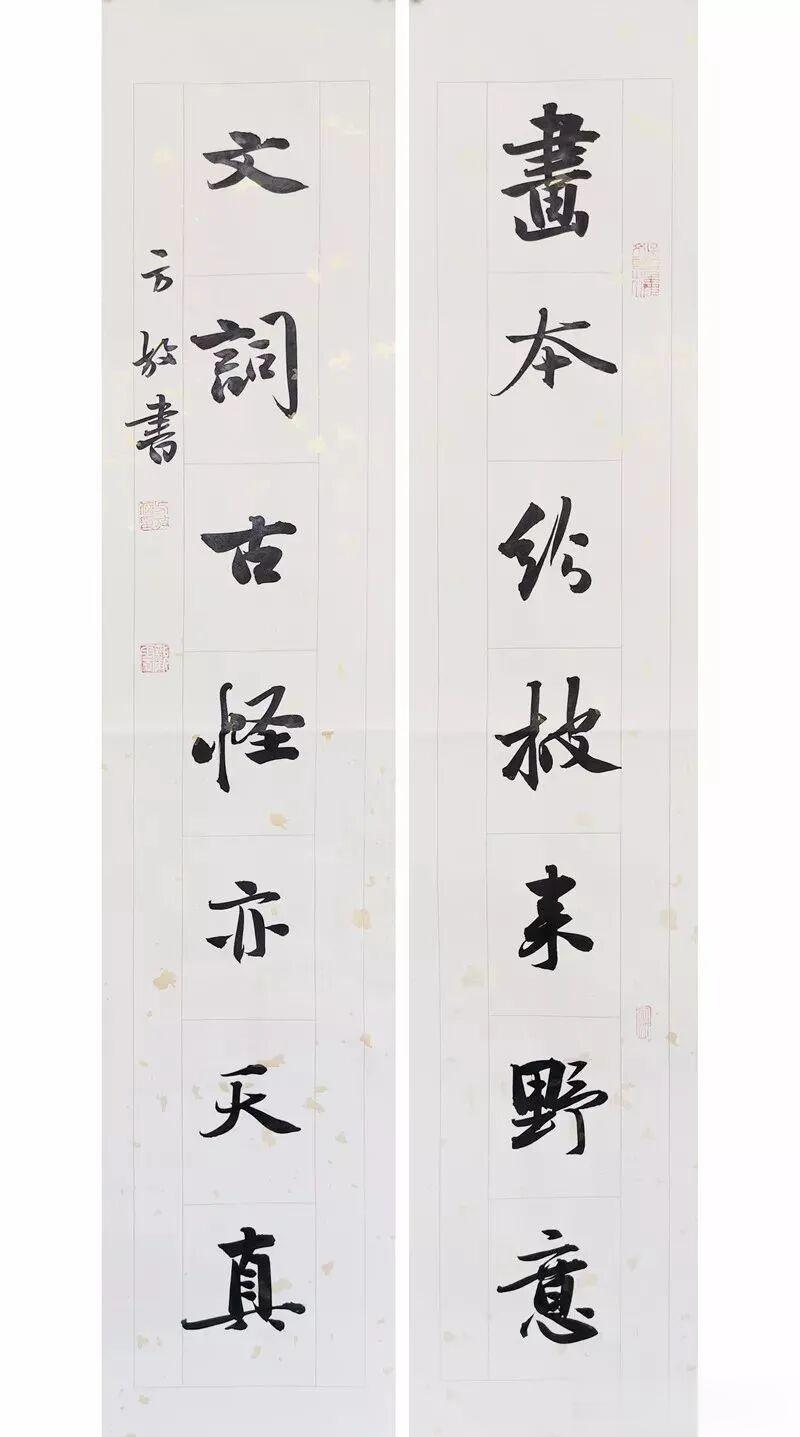 畫本紛披来野意
文詞古怪亦天真
方放書